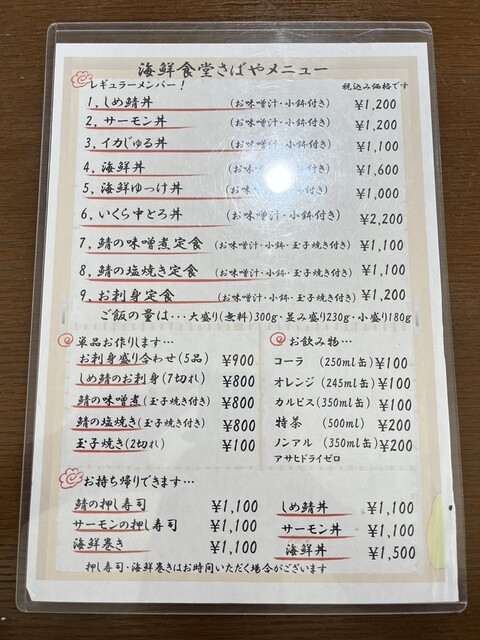 海鮮食堂さばやメニュー
レギュラーメンバー！ 税込み価格です
1, しめ鯖丼 (お味噌汁・小鉢付き) ¥1,200
2, サーモン丼 (お味噌汁・小鉢付き) ¥1,200
3, イカじゅる丼 (お味噌汁・小鉢付き) ¥1,100
4, 海鮮丼 (お味噌汁・小鉢付き) ¥1,600
5, 海鮮ゆっけ丼 (お味噌汁・小鉢付き) ¥1,000
6, いくら中とろ丼 (お味噌汁・小鉢付き) ¥2,200
7, 鯖の味噌煮定食 (お味噌汁・小鉢・玉子焼き付き) ¥1,100
8, 鯖の塩焼き定食 (お味噌汁・小鉢・玉子焼き付き) ¥1,100
9, お刺身定食 (お味噌汁・小鉢・玉子焼き付き) ¥1,200
ご飯の量は…大盛り(無料)300g・並み盛り230g・小盛り180g
単品お作りします…
お刺身盛り合わせ(5品) ¥900
しめ鯖のお刺身(7切れ) ¥800
鯖の味噌煮(玉子焼き付き) ¥800
鯖の塩焼き(玉子焼き付き) ¥800
玉子焼き(2切れ) ¥100
お飲み物…
コーラ (250ml缶) ¥100
オレンジ (245ml缶) ¥100
カルピス(350ml缶) ¥100
特茶 (500ml) ¥200
ノンアル (350ml缶) ¥200
アサヒドライゼロ
お持ち帰りできます…
鯖の押し寿司 ¥1,100
サーモンの押し寿司 ¥1,100
海鮮巻き ¥1,100
しめ鯖丼 ¥1,100
サーモン丼 ¥1,100
海鮮丼 ¥1,500
押し寿司・海鮮巻きはお時間いただく場合がございます